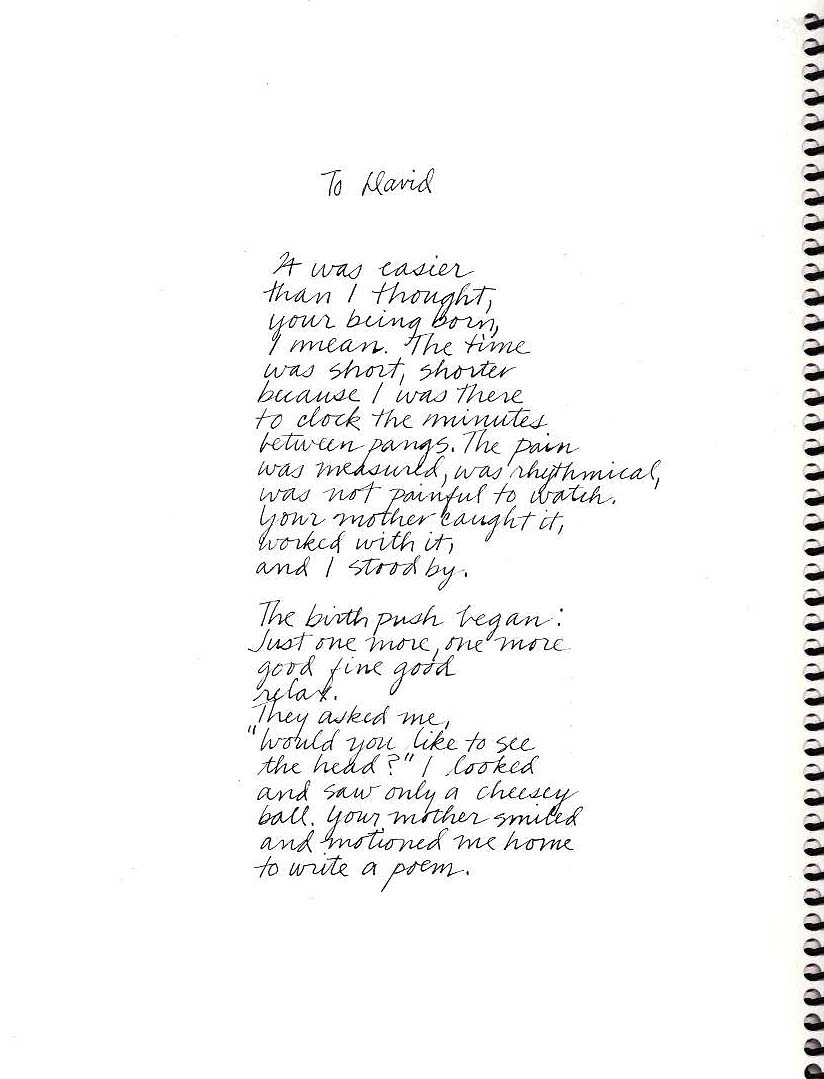 To David
It was easier
than I thought,
your being born,
I mean. The time
was short, shorter
because I was there
to clock the minutes
between pangs. The pain
was measured, was rhythmical,
was not painful to watch.
Your mother caught it,
worked with it,
and I stood by.
The birth push began:
Just one more, one more
good fine good
relax.
They asked me,
"Would you like to see
the head?" I looked
and saw only a cheesey
ball. Your mother smiled
and motioned me home
to write a poem.